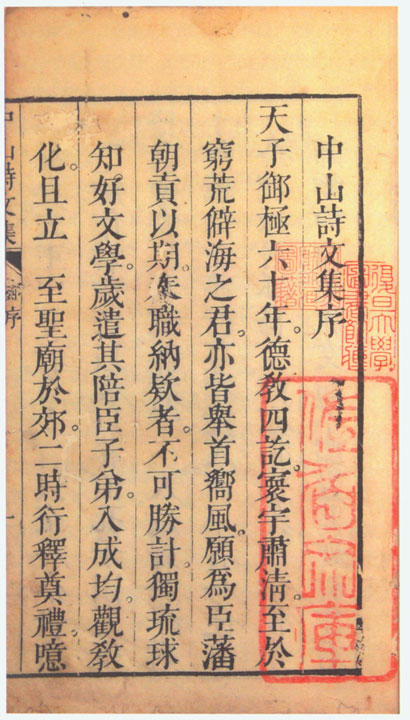 中山詩文集序
天子御極六十年。德教四訖。寰宇肅清。至於
窮荒僻海之君。亦皆舉首嚮風。願為臣藩
朝貢以期。奉職納欵者。不可勝計。獨琉球
知好文學。歲遣其陪臣子弟。入成均觀教
化且立　至聖廟於郊。二時行釋奠禮。噫
中山詩文集 序 一
復旦大學圖書館藏